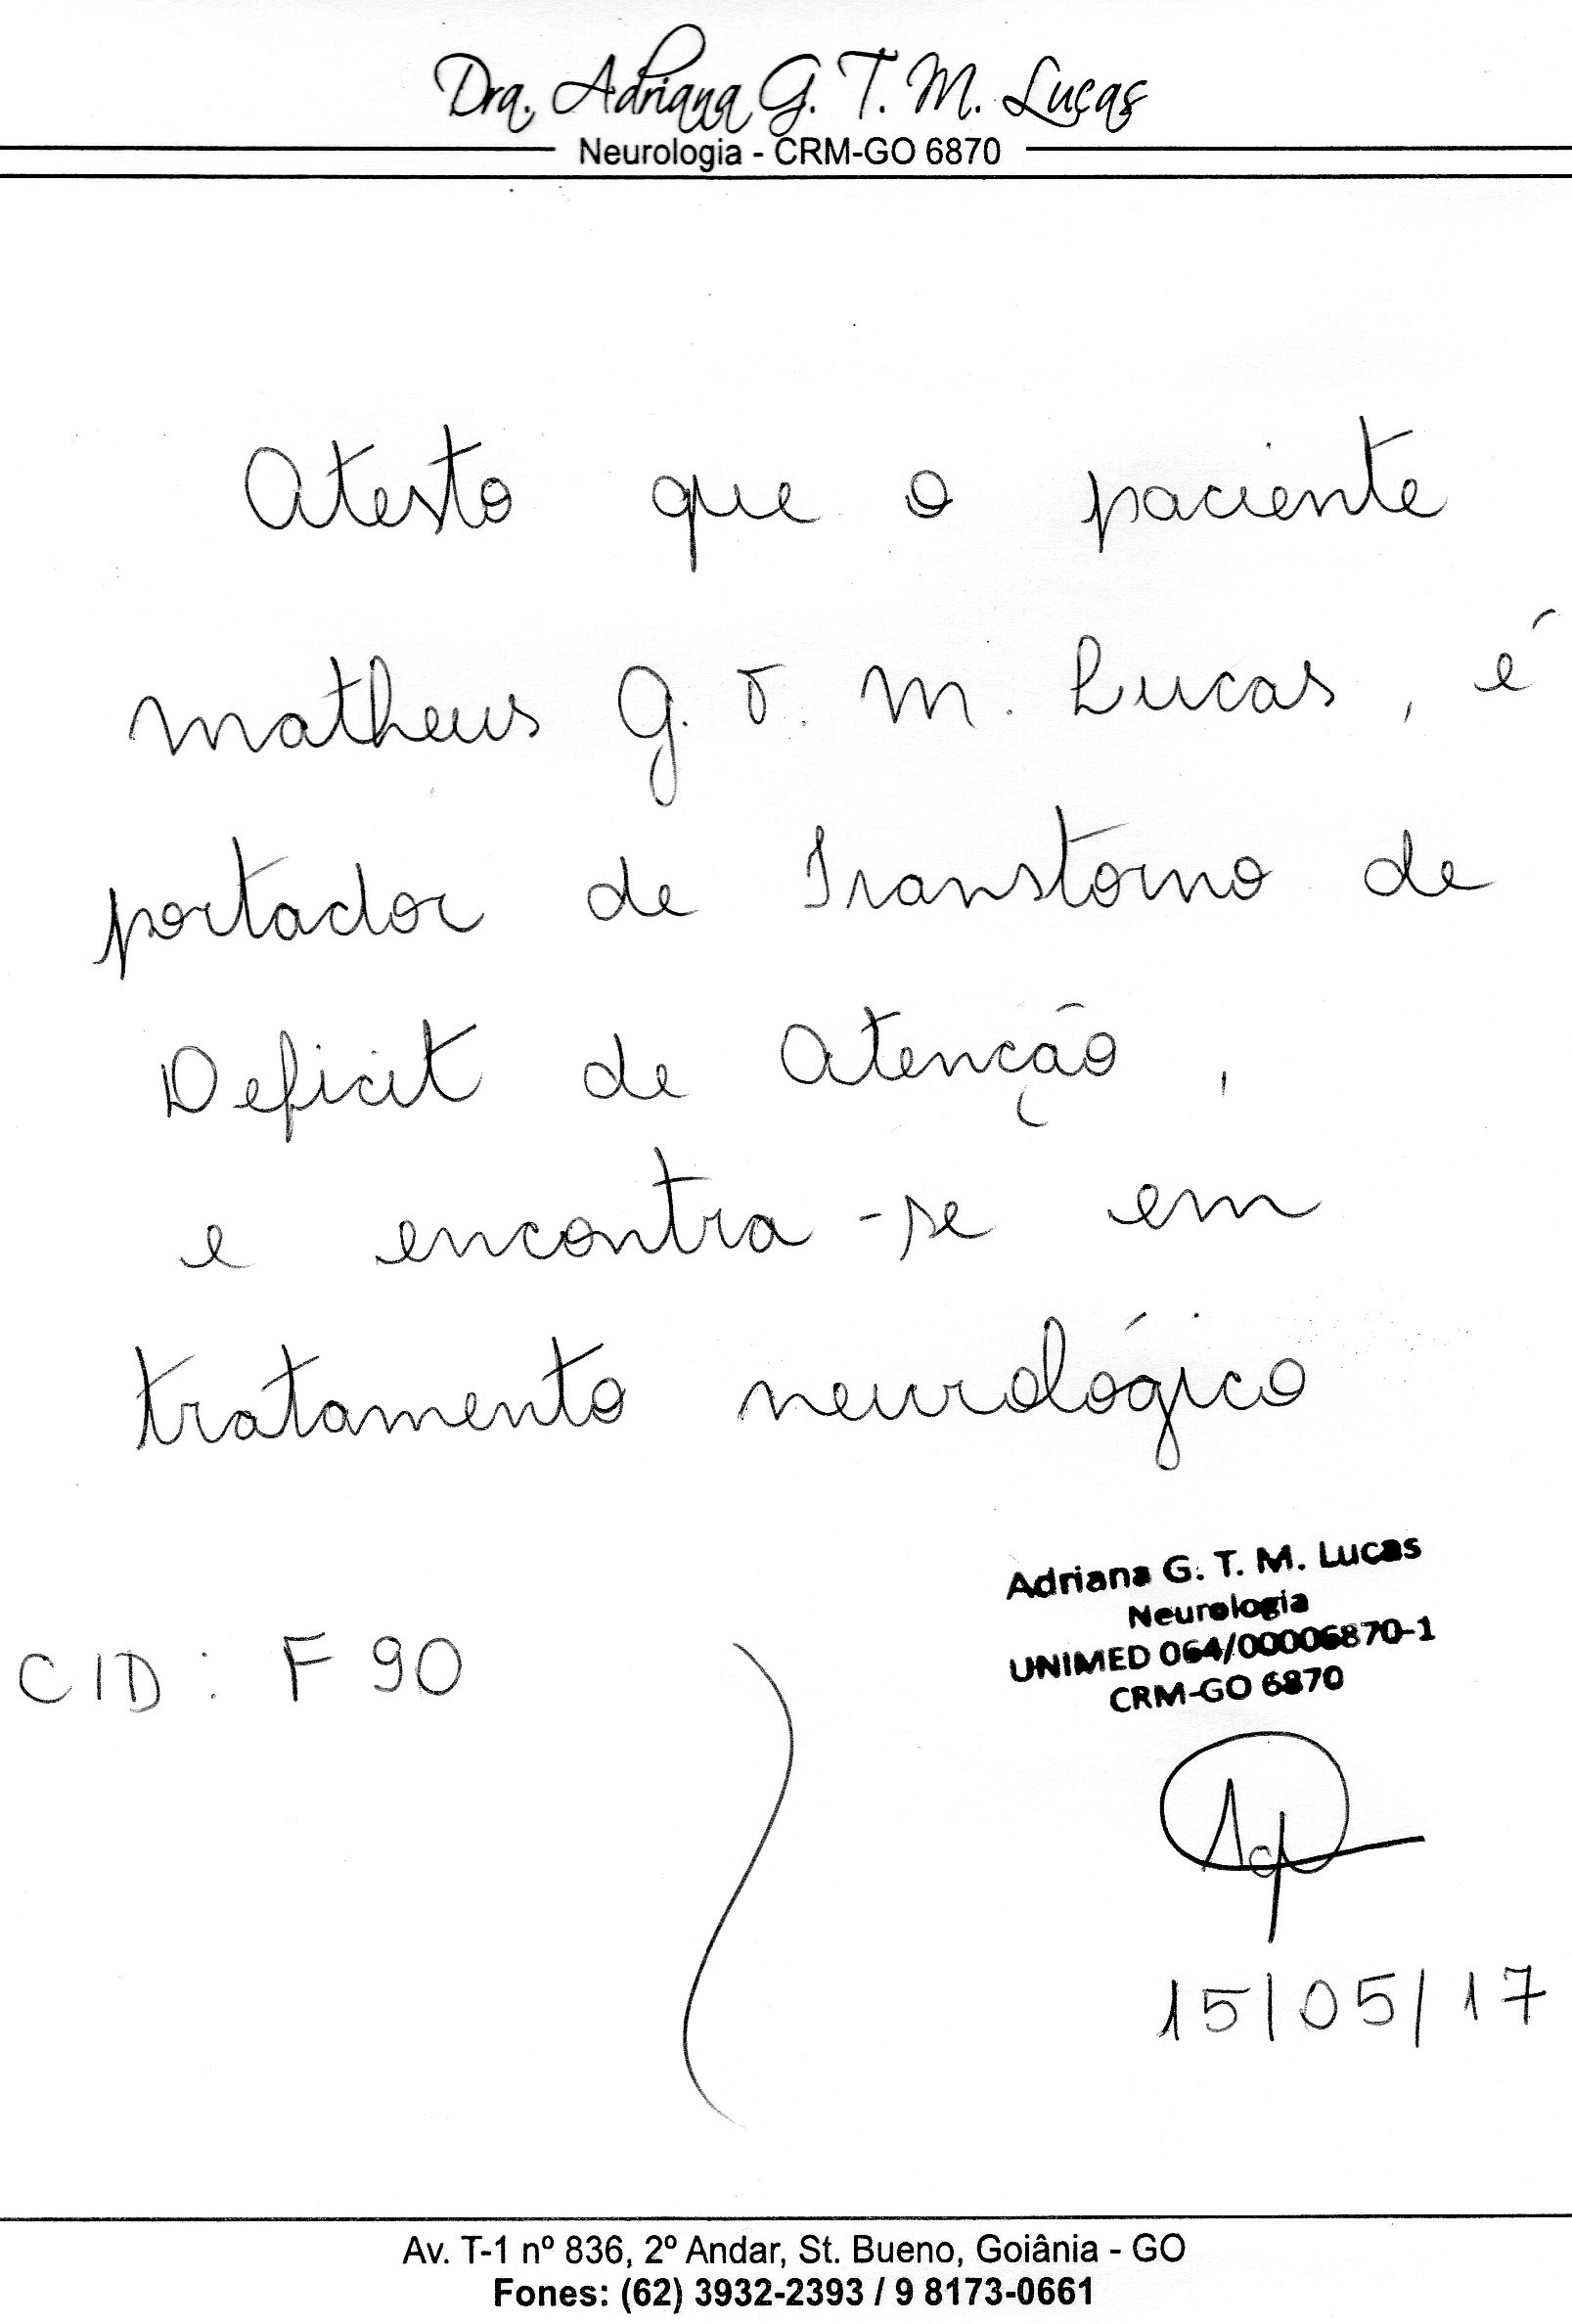 Dra. Adriana G. T. M. Lucas
Neurologia - CRM-GO 6870
Atesto que o paciente
Matheus G. T. M. Lucas, é
portador de Transtorno de
Deficit de Atenção,
e encontra-se em
tratamento neurológico
Adriana G. T. M. Lucas
Neurologia
UNIMED 064/00006870-1
CRM-GO 6870
CID: F 90
15/05/17
Av. T-1 nº 836, 2º Andar, St. Bueno, Goiânia - GO
Fones: (62) 3932-2393 / 9 8173-0661